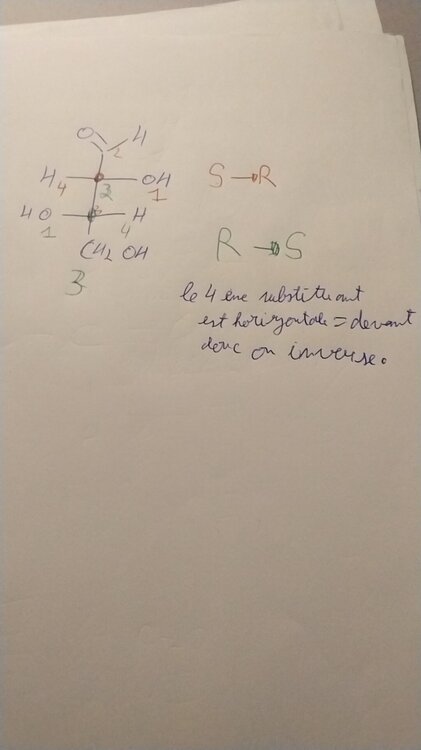 O H
2
H 4 3 OH 1 S → R
HO 1 2 H 4
CH2 OH R → S
3
le 4 ème substituant
est horizontale = devant
donc on inverse.